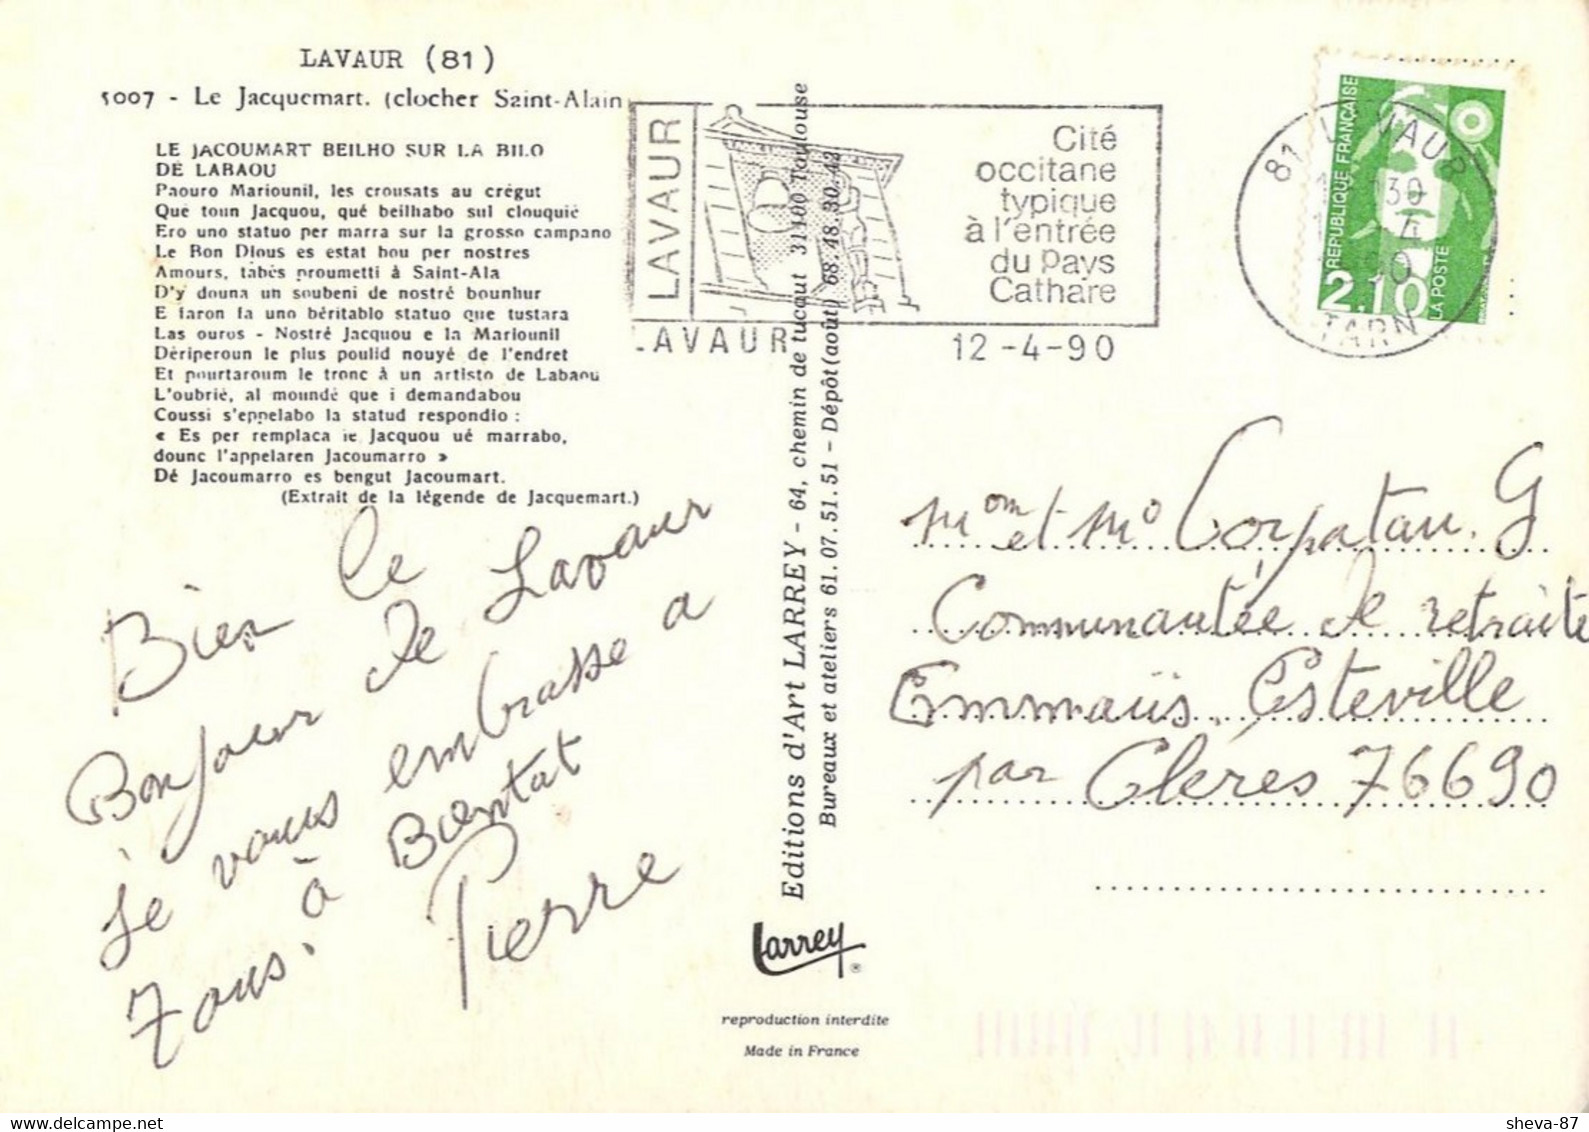 LAVAUR (81)
5007 - Le Jacquemart. (clocher Saint-Alain
LE JACOUMART BEILHO SUR LA BILO
DE LABAOU
Paouro Mariounil, les crousats au crégut
Qué toun Jacquou, qué beilhabo sul clouquié
Ero uno statuo per marra sur la grosso campano
Le Bon Dious es estat bou per nostres
Amours, tabès proumetti à Saint-Ala
D'y douna un soubeni de nostré bounhur
E faron fa uno bèritablo statuo que tustara
Las ouros - Nostré Jacquou e la Mariounil
Dèriperoun le plus poulid nouyé de l'endret
Et pourtaroum le tronc à un artisto de Labaou
L'oubrié, al moundé que i demandabou
Coussi s'eppelabo la statud respondio :
« Es per remplaca le Jacquou ué marrabo,
dounc l'appelaren Jacoumarro »
Dé Jacoumarro es bengut Jacoumart.
(Extrait de la légende de Jacquemart.)
Bien le
Bonjour de Lavaur
je vous embrasse a
Tous. à Bientat
Pierre
Editions d'Art LARREY - 64, chemin de tucaut 31100 Toulouse
Bureaux et ateliers 61.07.51.51 - Dépôt (août) 68.48.30.42
Larrey ®
reproduction interdite
Made in France
LAVAUR
Cité
occitane
typique
à l'entrée
du pays
Cathare
LAVAUR 12-4-90
81 LAVAUR
TARN
REPUBLIQUE FRANÇAISE
2,10
LA POSTE
Mom et Mo Corpatau. G
Communautée de retraite
Emmaüs. Esteville
par Cleres 76690
sheva-87